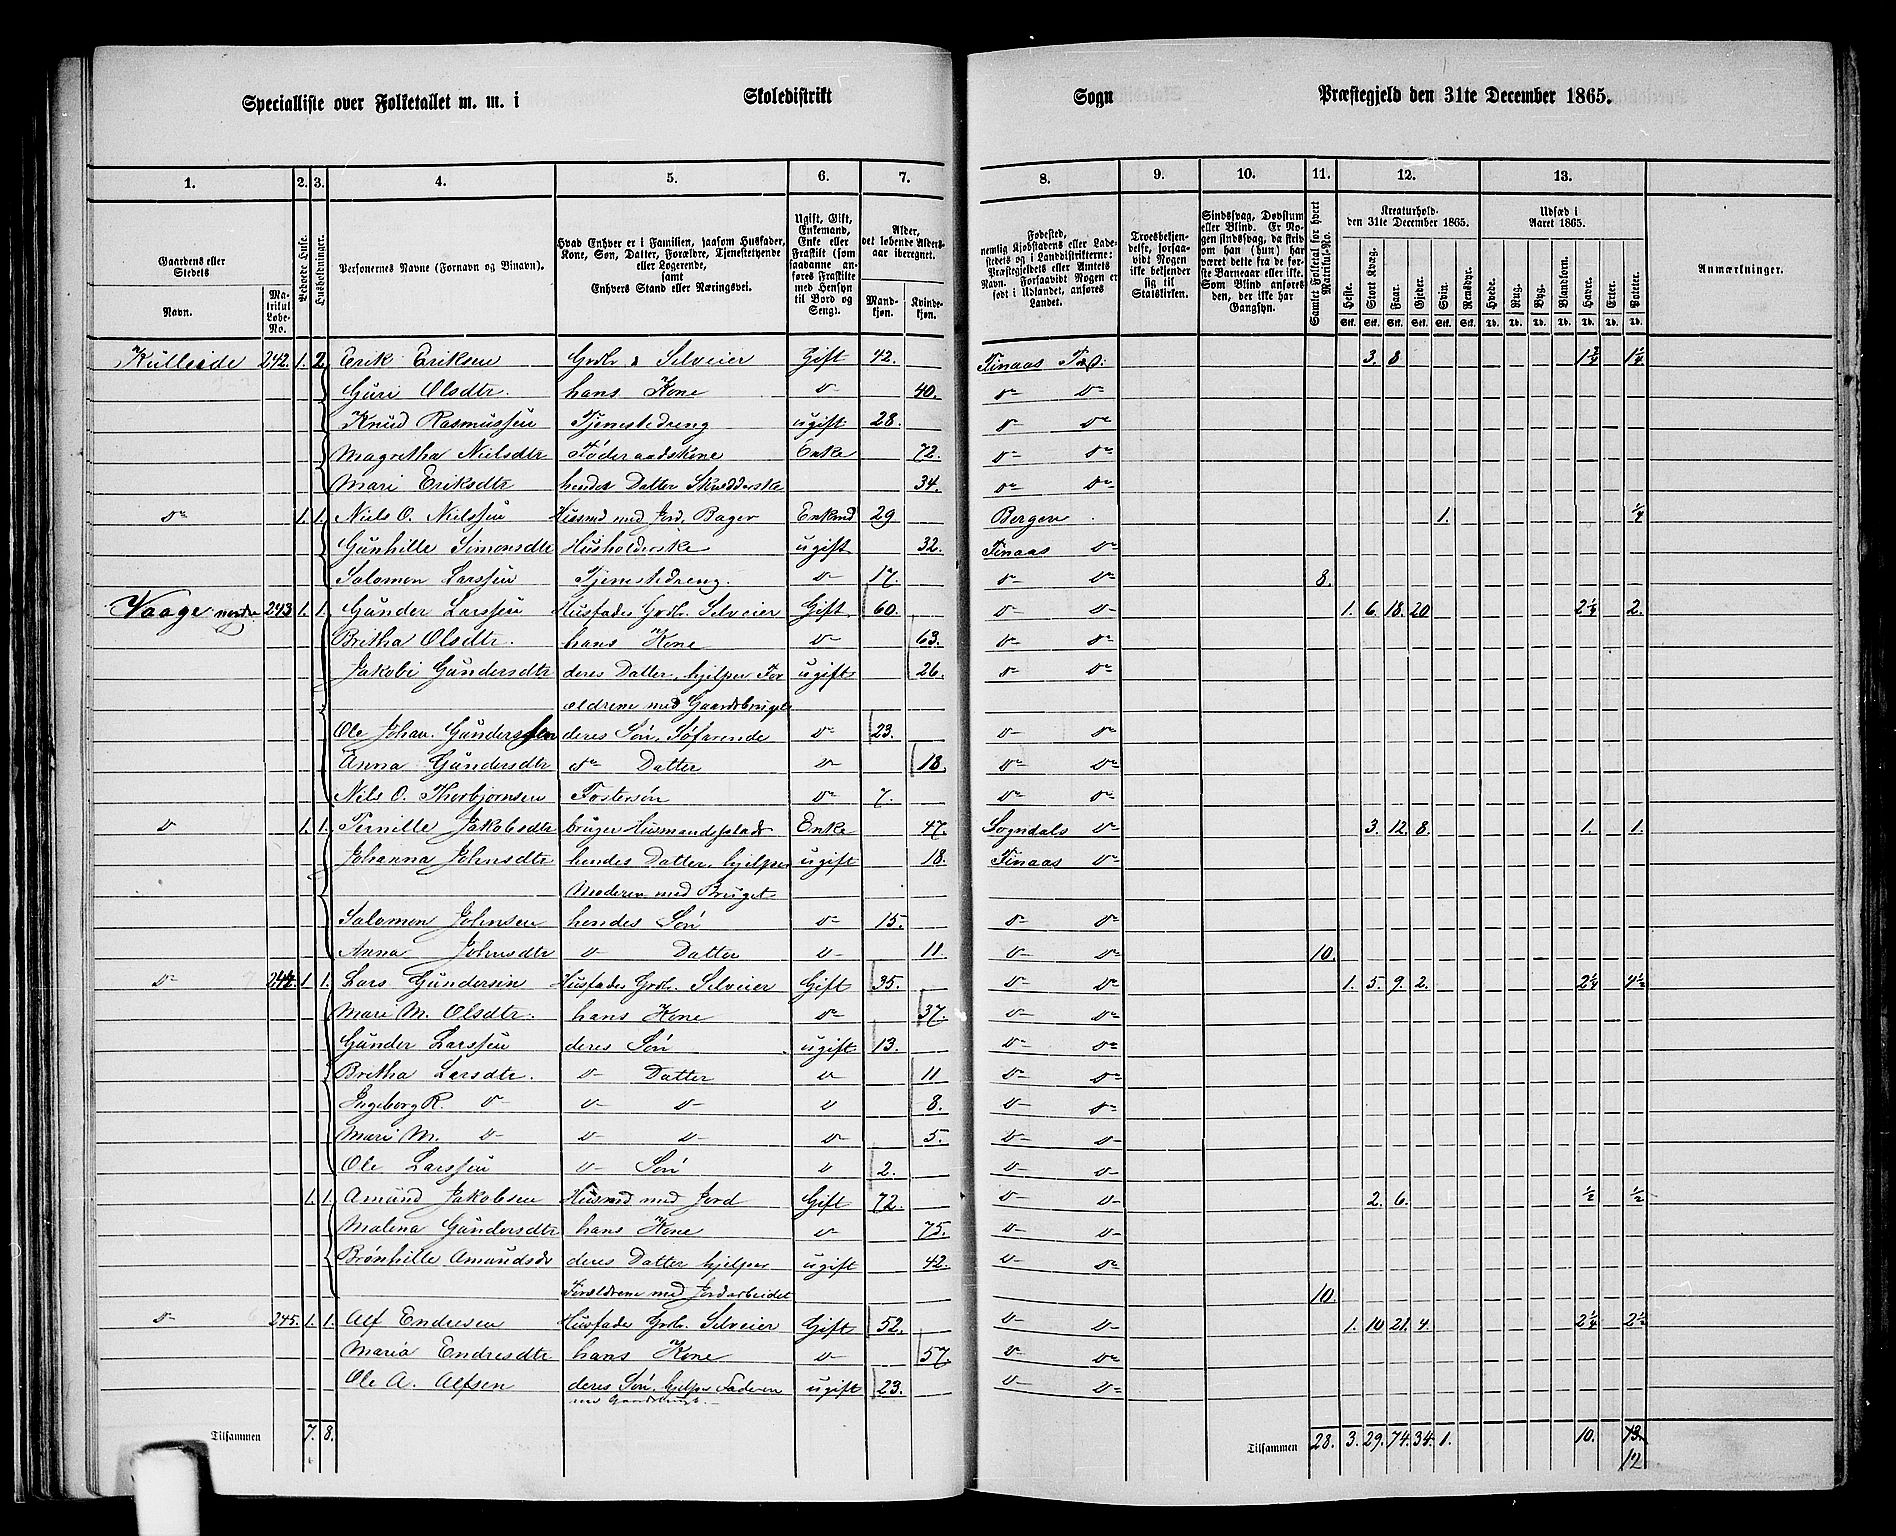 Specialliste over Folketallet m. m. i Skoledistrikt Sogn Præstegjeld den 31te December 1865.
1. 2. 3. 4. 5. 6. 7. 8. 9. 10. 11. 12. 13.
Gaardens eller Stedets
Navn.
Matrikul Løbe-No.
Beboede Huse.
Husholdninger.
Personernes Navne (Fornavn og Binavn).
Hvad Enhver er i Familien, saasom Husfader, Kone, Søn, Datter, Forældre, Tjenestetyende eller Logerende, samt Enhvers Stand eller Næringsvei.
Ugift, Gift, Enkemand, Enke eller Fraskilt (som saadanne anføres Fraskilte med Hensyn til Bord og Seng).
Alder, det løbende Alders-aar iberegnet.
Mand-kjøn. Kvinde-kjøn.
Fødested, nemlig Kjøbstadens eller Ladestedets og i Landdistrikterne: Præstegjeldets eller Amtets Navn. Forsaavidt Nogen er født i Udlandet, anføres Landet.
Troesbekjendelse, forsaavidt Nogen ikke bekjender sig til Statskirken.
Sindssvag, Døvstum eller Blind. Er Nogen sindssvag, da skrives om han (hun) har været dette fra de første Barneaar eller ikke. Som Blind anføres den, der ikke har Gangsyn.
Samlet Folketal for hvert Matrikul-No.
Kreaturhold den 31te December 1865.
Heste. Stort Kvæg. Faar. Gjeder. Svin. Rensdyr.
Udsæd i Aaret 1865.
Hvede. Rug. Byg. Blandkorn. Havre. Erter. Poteter.
Anmærkninger.
Stk. Stk. Stk. Stk. Stk. Stk. Td. Td. Td. Td. Td. Td. Td.
Kulleide 242. 1. 2. Erik Eriksen Grdbr & Selveier Gift 42. Finaas Præ: 3. 8 1 3/4 1 1/4
Guri Olsdtr. hans Kone do 40. do do
Knud Rasmussen Tjenestedreng ugift 28. do do
Magretha Nielsdtr Føderaadskone Enke 72. do do
Mari Eriksdtr hendes Datter 34. do do
do 1. 1. Niels O. Nielssen Husmd med Jord, Bager Enkmd 29 Bergen 1. 1/4
Gunhille Simonsdtr Husholderske ugift 32. Finaas do
Salomon Larssen Tjenestedreng. do 17. do do 8.
Vaage nordre 243 1. 1. Gunder Larssen Husfader Grdbr. Selveier Gift 60. do do 1. 6. 18. 20 2 1/4 2.
Britha Olsdtr. hans Kone do 63. do do
Jakobi Gundersdtr deres Datter, hjelper For ugift 26. do do
ældrene med Gaardsbruget
Ole Johan. Gunderssen deres Søn, Søfarende do 23. do do
Anna Gundersdtr do Datter do 18. do do
Nils O. Thorbjørnsen Fostersøn do 7. do do
do 1. 1. Pernille Jakobsdtr bruger Husmandsplads Enke 47. Sogndals do 3. 12. 8. 1. 1.
Johanna Johnsdtr hendes Datter, hjelper ugift 18. Finaas do
Moderen med Bruget
Salomon Johnsen hendes Søn do 15. do do
Anna Johnsdtr do Datter do 11. do do 10.
do 244. 1 1. Lars Gundersen Husfader Grdbr. Selveier Gift 35. do do 1. 5. 9. 2. 2 1/4 4 1/2
Mari M. Olsdtr. hans Kone do 37. do do
Gunder Larssen deres Søn ugift 13. do do
Britha Larsdtr. do Datter do 11 do do
Ingeborg R. do do do do 8. do do
Mari M. do do do do 5. do do
Ole Larssen do Søn do 2. do do
1. 1. Amund Jakobsen Husmd med Jord Gift 72. do do 2. 6. 1/2 1/2
Malena Gundersdtr hans Kone do 75. do do
Brønhille Amundsdr deres Datter hjelper ugift 42. do do
Forældrene med Jordarbeidet 10.
do 245. 1. 1. Alf Endresen Husfader Grdbr. Selveier Gift 52. do do 1. 10 21. 4. 2 1/4 2 1/2
Maria Endresdtr hans Kone do 57. do do
Ole A. Alfsen deres Søn, hjelper Faderen ugift 23. do do
med Gaardsbruget.
Tilsammen 7. 8. Tilsammen 28. 3. 29. 74. 34. 1. 10. 13.
12